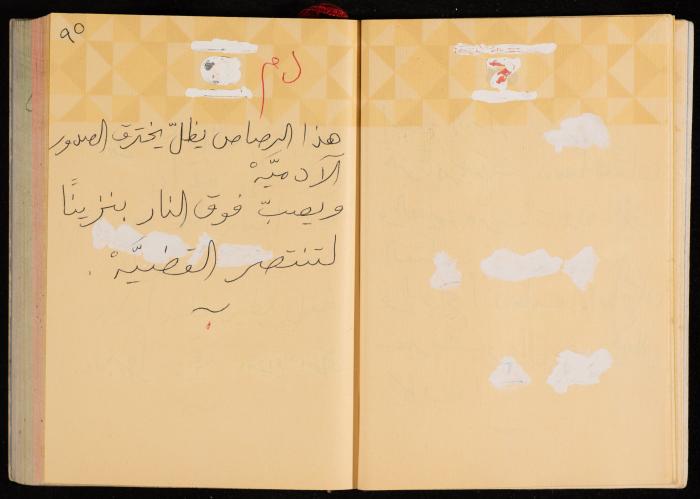 ٩٥
هذا الرصاص يظلّ يخترق الصدور
الآدميَّهْ
ويصبّ فوق النار بنزينًا
لتنتصر القضيَّهْ .